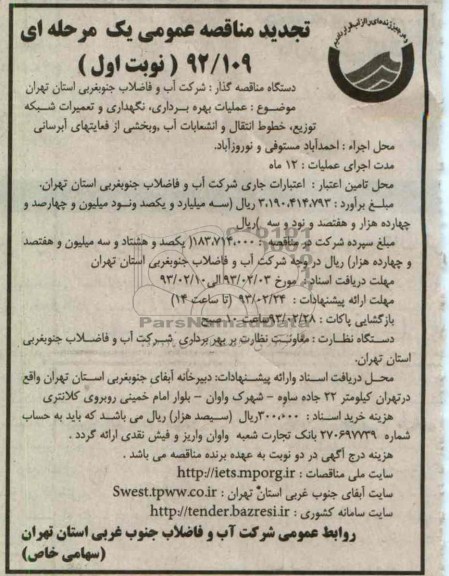 تجدید مناقصه عمومی یک مرحله ای
۹۲/۱۰۹ ( نوبت اول )
دستگاه مناقصه گذار : شرکت آب و فاضلاب جنوبغربی استان تهران
موضوع : عملیات بهره برداری، نگهداری و تعمیرات شبکه
توزیع، خطوط انتقال و انشعابات آب ,وبخشی از فعایتهای آبرسانی
محل اجراء : احمدآباد مستوفی و نوروزآباد.
مدت اجرای عملیات : ۱۲ ماه
محل تامین اعتبار : اعتبارات جاری شرکت آب و فاضلاب جنوبغربی استان تهران.
مبلغ برآورد : ۳،۱۹۰،۴۱۴،۷۹۳ ریال (سه میلیارد و یکصد ونود میلیون و چهارصد و
چهارده هزار و هفتصد و نود و سه )ریال
مبلغ سپرده شرکت در مناقصه : ۱۸۳،۷۱۴،۰۰۰( یکصد و هشتاد و سه میلیون و هفتصد
و چهارده هزار) ریال دروجه شرکت آب و فاضلاب جنوبغربی استان تهران
مهلت دریافت اسناد : مورخ ۹۳/۰۲/۰۳الی۹۳/۰۲/۱۰
مهلت ارائه پیشنهادات : ۹۳/۰۲/۲۴ (تا ساعت ۱۴)
بازگشایی پاکات : ۹۳/۰۲/۲۸ساعت ۱۰ صبح
ParsNamadData
دستگاه نظارت : معاونت نظارت بر بهره برداری شرکت آب و فاضلاب جنوبغربی
استان تهران.
محل دریافت اسناد وارائه پیشنهادات: دبیرخانه آبفای جنوبغربی استان تهران واقع
درتهران کیلومتر ۲۲ جاده ساوه – شهرک واوان – بلوار امام خمینی روبروی کلانتری
هزینه خرید اسناد : ۳۰۰،۰۰۰ریال (سیصد هزار) ریال می باشد که باید به حساب
شماره ۲۷۰۶۹۷۷۳۹ بانک تجارت شعبه واوان واریز و فیش نقدی ارائه گردد .
هزینه درج آگهی در دو نوبت به عهده برنده مناقصه می باشد .
سایت ملی مناقصات : http://iets.mporg.ir
سایت آبفای جنوب غربی استان تهران : Swest.tpww.co.ir
سایت سامانه کشوری : http://tender.bazresi.ir
روابط عمومی شرکت آب و فاضلاب جنوب غربی استان تهران
(سهامی خاص)